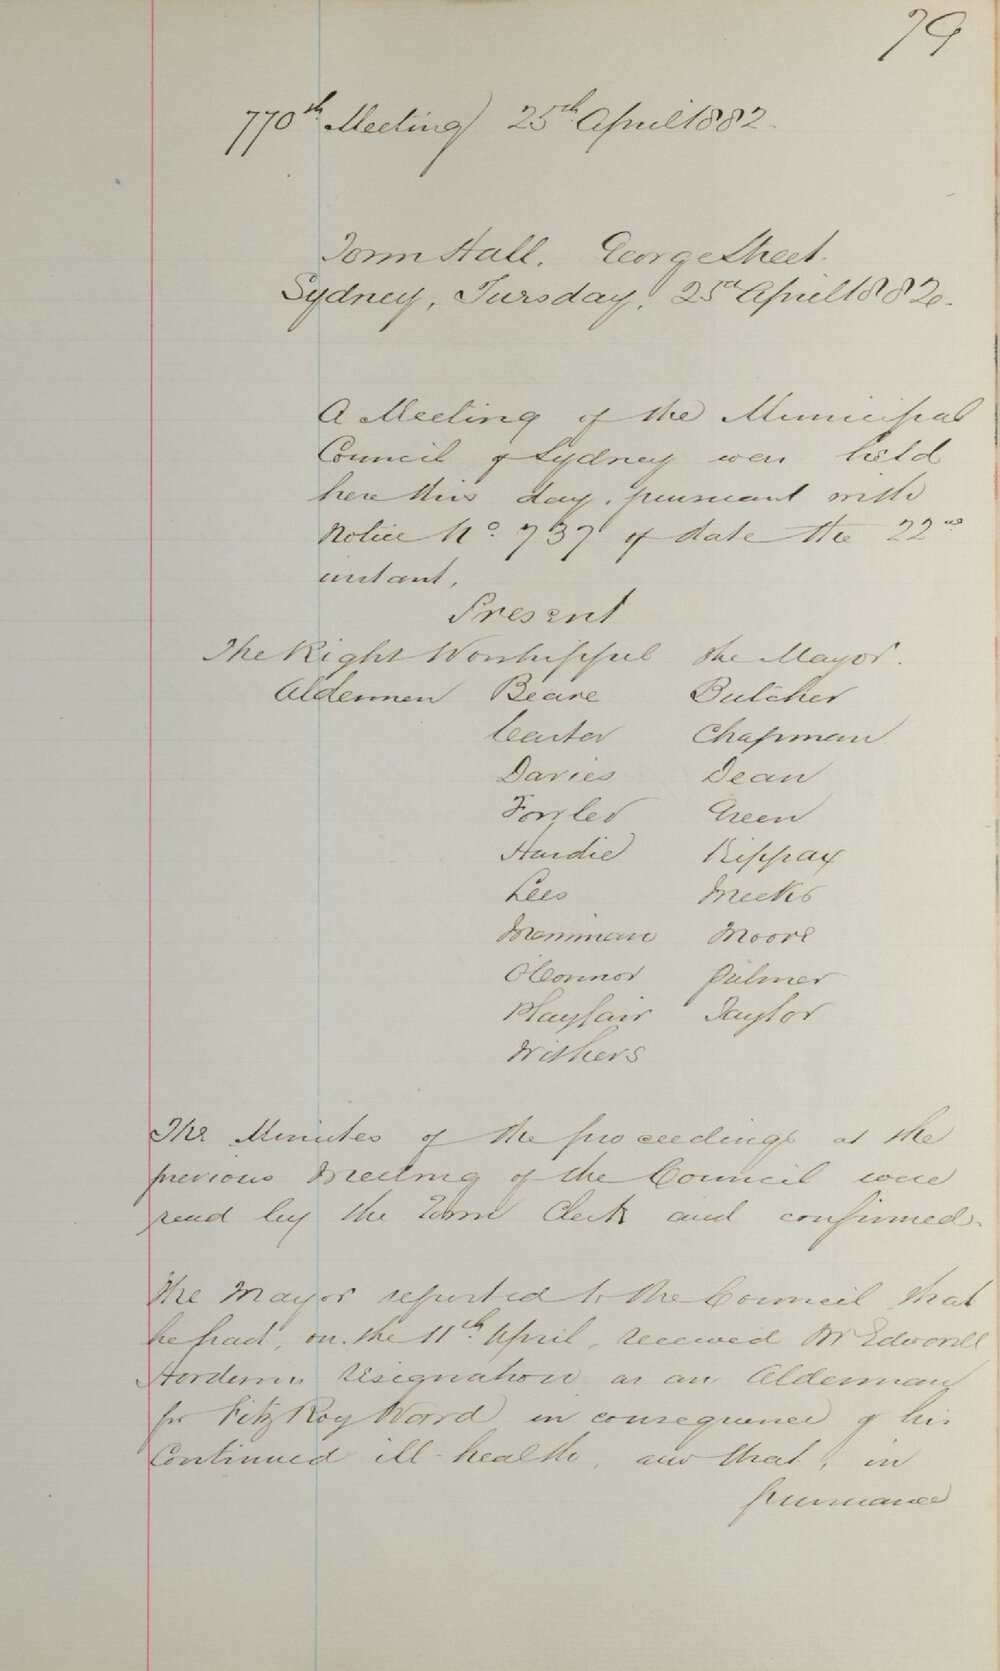 79
770th Meeting) 25th April 1882.
Town Hall, George Street.
Sydney, Tuesday, 25th April 1882.
A Meeting of the Municipal
Council of Sydney was held
here this day, pursuant with
Notice No. 737 of date the 22nd
instant.
Present
The Right Worshipful the Mayor.
Aldermen Beare Butcher
Carter Chapman
Davies Dean
Fowler Green
Hardie Kippax
Lees Meeks
Merriman Moore
O'Connor Palmer
Playfair Taylor
Withers
The Minutes of the proceedings at the
previous Meeting of the Council were
read by the Town Clerk and confirmed.
The Mayor reported to the Council that
he had, on the 11th April, received Mr Edward
Hordern's resignation as an Alderman
for FitzRoy Ward in consequence of his
Continued ill-health, and that, in
pursuance